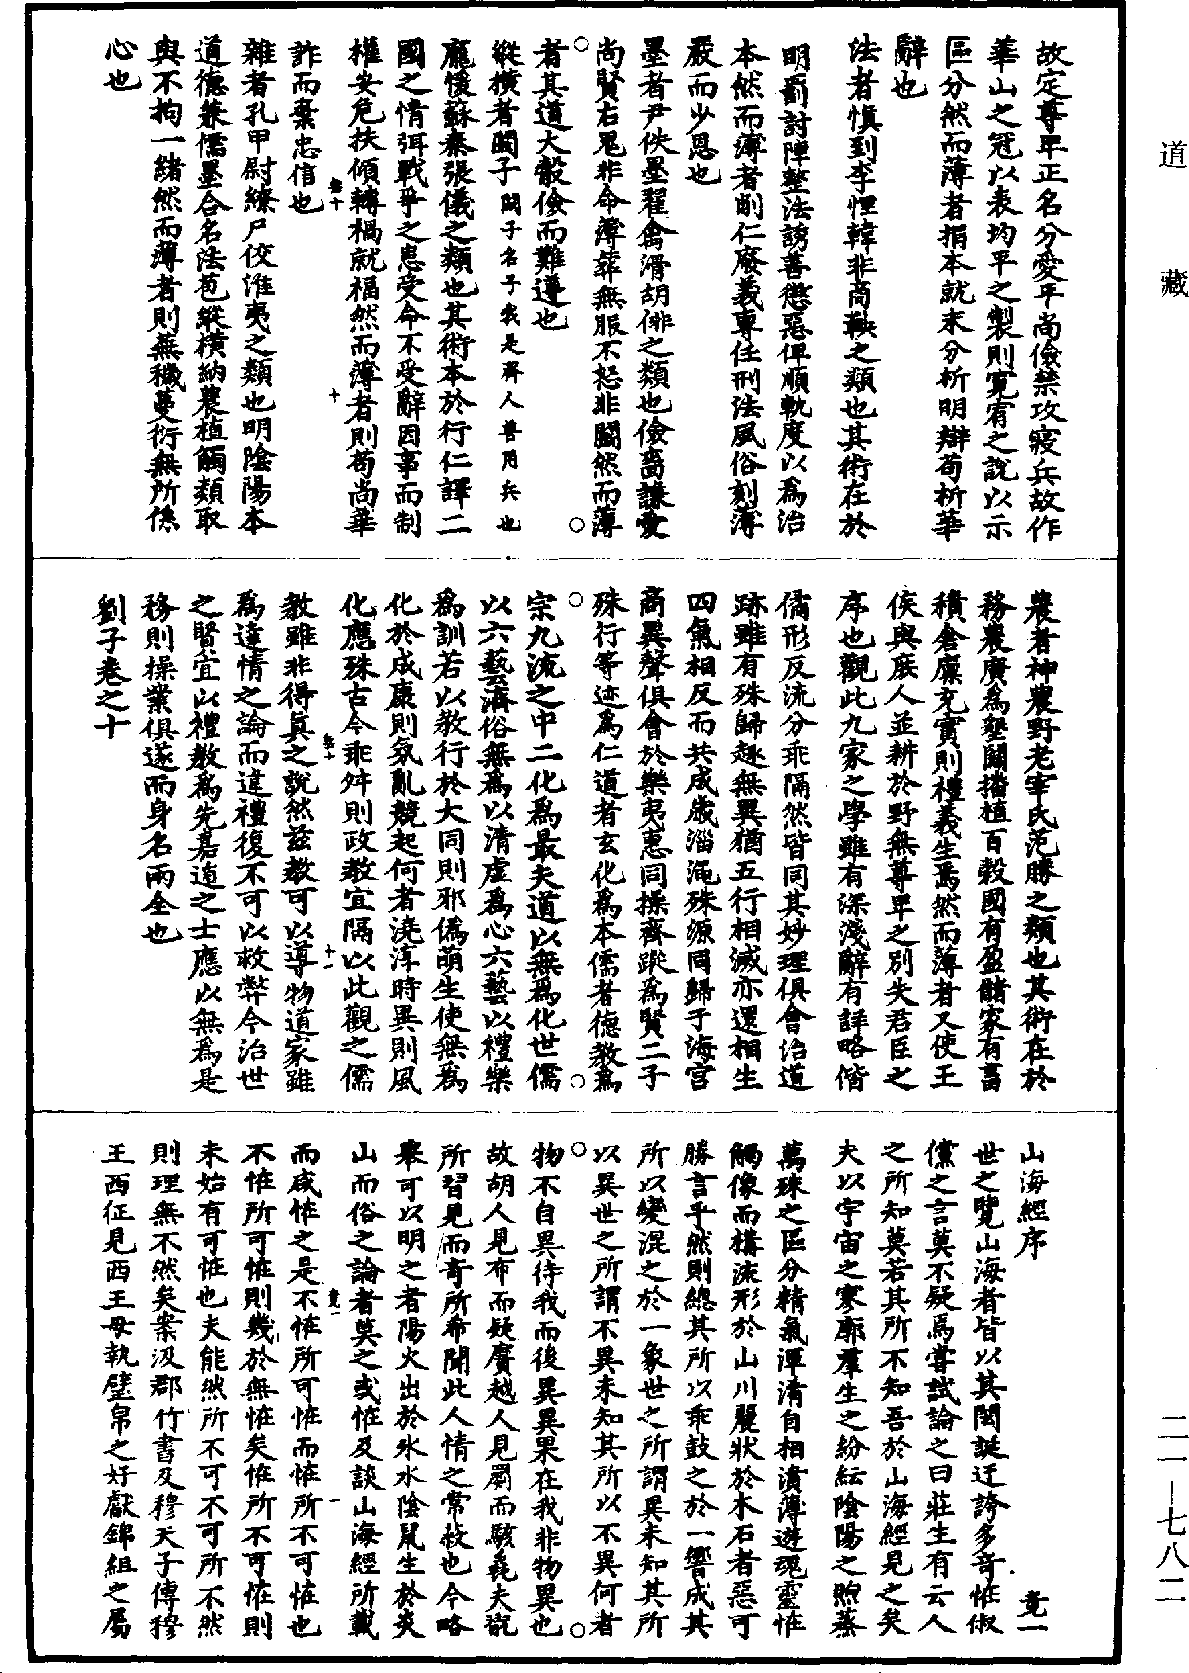 道藏
故定尊卑正名分愛平尚儉禁攻寢兵故作
華山之冠以表均平之製則寬宥之說以示
區分然而薄者捐本就末分析明辯苟析華
辭也
法者慎到李悝韓非商鞅之類也其術在於
明罰討陣整法誘善懲惡俾順軌度以為治
本然而薄者削仁廢義專任刑法風俗刻薄
嚴而少恩也
墨者尹佚墨翟禽滑胡非之類也儉嗇謙愛
尚賢右鬼非命薄葬無服不怒非鬬然而薄
者其道大觳儉而難遵也
縱橫者闞子闞子名子我是齊人善用兵也
龐煖蘇秦張儀之類也其術本於行仁譯二
國之情弭戰爭之患受命不受辭因事而制
權安危扶傾轉禍就福然而薄者則苟尚華
詐而棄忠信也
雜者孔甲尉繚尸佼淮夷之類也明陰陽本
道德兼儒墨合名法苞縱橫納農植觸類取
與不拘一緒然而薄者則無穢蔓衍無所係
心也
農者神農野老宰氏范勝之類也其術在於
務農廣為墾闢播植百穀國有盈儲家有畜
積倉廩充實則禮義生焉然而薄者又使王
侯與庶人並耕於野無尊卑之別失君臣之
序也觀此九家之學雖有深淺辭有詳略偕
僪形反流分乖隔然皆同其妙理俱會治道
跡雖有殊歸趣無異猶五行相滅亦還相生
四氣相反而共成歲淄澠殊源同歸于海宮
商異聲俱會於樂夷惠同操齊蹤為賢二子
殊行等迹為仁道者玄化為本儒者德教為
宗九流之中二化為最夫道以無為化世儒
以六藝濟俗無為以清虛為心六藝以禮樂
為訓若以教行於大同則邪偽萌生使無為
化於成康則氛亂競起何者澆淳時異則風
化應殊古今乖舛則政教宜隔以此觀之儒
教雖非得真之說然茲教可以導物道家雖
為達情之論而違禮復不可以救弊今治世
之賢宜以禮教為先嘉遁之士應以無為是
務則操業俱遂而身名兩全也
劉子卷之十
山海經序
竟一
世之覽山海者皆以其閎誕迂誇多奇怪俶
儻之言莫不疑焉嘗試論之曰莊生有云人
之所知莫若其所不知吾於山海經見之矣
夫以宇宙之寥廓羣生之紛紜陰陽之煦蒸
萬殊之區分精氣渾淆自相濆薄遊魂靈怪
觸像而構流形於山川麗狀於木石者惡可
勝言乎然則總其所以乖鼓之於一響成其
所以變混之於一象世之所謂異未知其所
以異世之所謂不異未知其所以不異何者
物不自異待我而後異異果在我非物異也
故胡人見布而疑黂越人見罽而駭毳夫翫
所習見而奇所希聞此人情之常蔽也今略
舉可以明之者陽火出於冰水陰鼠生於炎
山而俗之論者莫之或怪及談山海經所載
而咸怪之是不怪所可怪而怪所不可怪也
不怪所可怪則幾於無怪矣怪所不可怪則
未始有可怪也夫能然所不可不可所不然
則理無不然矣案汲郡竹書及穆天子傳穆
王西征見西王母執璧帛之好獻錦組之屬
二一—七八二